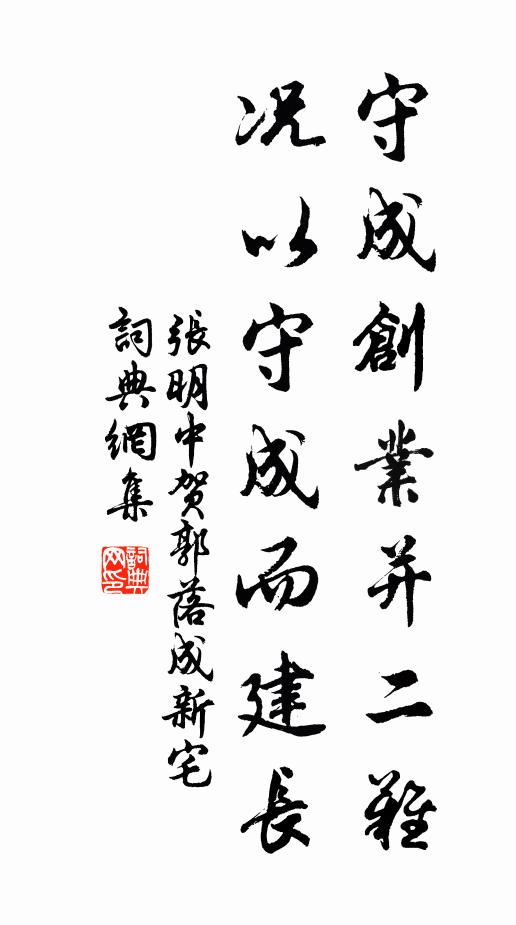 守成創業并二難
况以守成而建長
張明中賀郭落成新宅
詞典網集
詞典网印